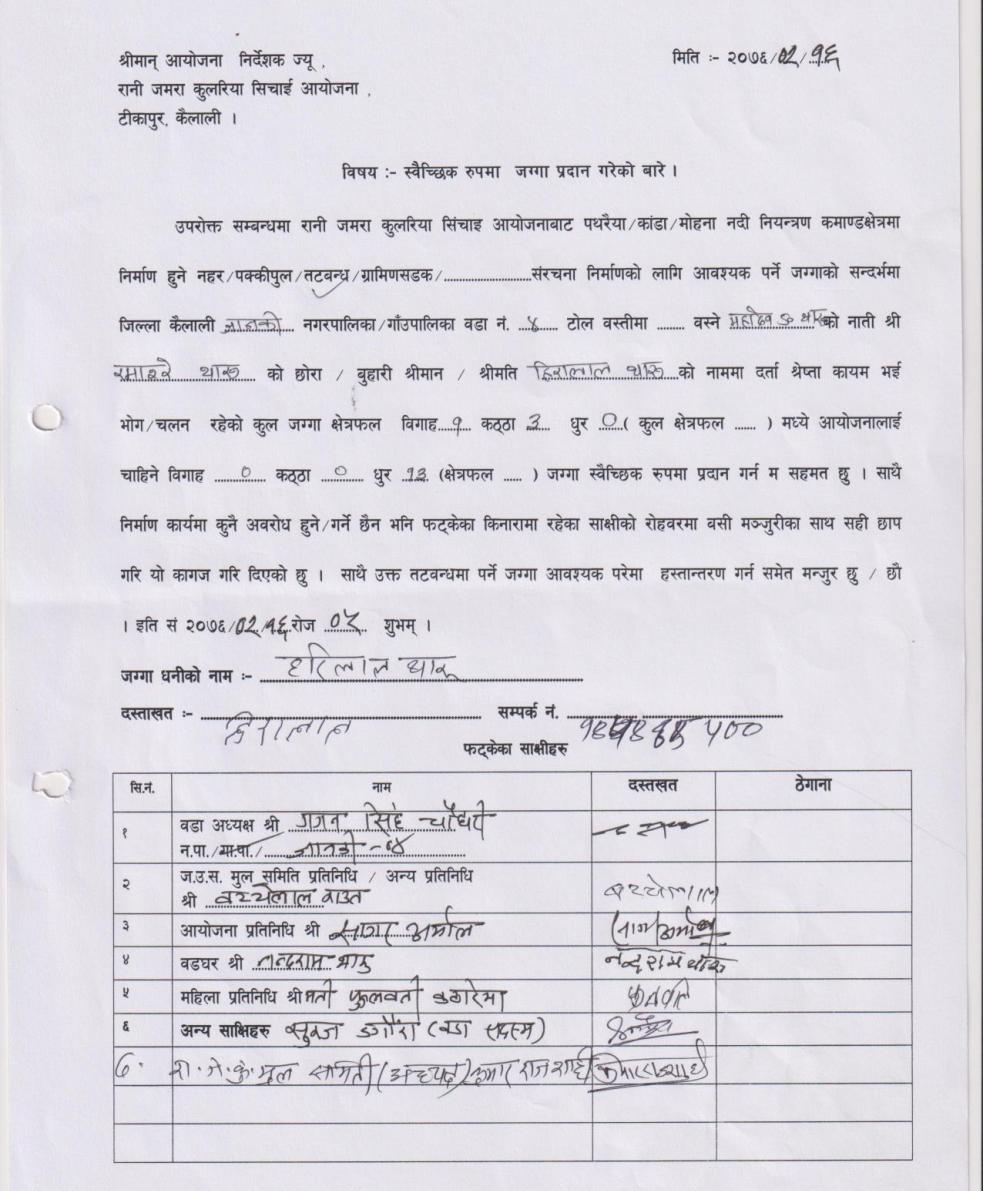 श्रीमान् आयोजना निर्देशक ज्यू ,
मिति :- २०७६/०२/१६
रानी जमरा कुलरिया सिचाई आयोजना ,
टीकापुर, कैलाली ।
विषय :- स्वैच्छिक रुपमा जग्गा प्रदान गरेको बारे ।
उपरोक्त सम्बन्धमा रानी जमरा कुलरिया सिंचाइ आयोजनाबाट पथरैया/कांडा/मोहना नदी नियन्त्रण कमाण्डक्षेत्रमा
निर्माण हुने नहर/पक्कीपुल/तटबन्ध/ग्रामिणसडक/......................संरचना निर्माणको लागि आवश्यक पर्ने जग्गाको सन्दर्भमा
जिल्ला कैलाली जानकी नगरपालिका/गाँउपालिका वडा नं. ४ टोल वस्तीमा ........ वस्ने थारुको नाती श्री
थारु को छोरा / बुहारी श्रीमान / श्रीमति हिरालाल थारु को नाममा दर्ता श्रेष्ता कायम भई
भोग/चलन रहेको कुल जग्गा क्षेत्रफल विगाह १ कठ्ठा ३ धुर ० ( कुल क्षेत्रफल ...... ) मध्ये आयोजनालाई
चाहिने विगाह ० कठ्ठा ० धुर १३ (क्षेत्रफल ..... ) जग्गा स्वैच्छिक रुपमा प्रदान गर्न म सहमत छु । साथै
निर्माण कार्यमा कुनै अवरोध हुने/गर्ने छैन भनि फट्केका किनारामा रहेका साक्षीको रोहवरमा वसी मञ्जुरीका साथ सही छाप
गरि यो कागज गरि दिएको छु । साथै उक्त तटवन्धमा पर्ने जग्गा आवश्यक परेमा हस्तान्तरण गर्न समेत मन्जुर छु / छौ
। इति सं २०७६/०२/१६ रोज ०५ शुभम् ।
जग्गा धनीको नाम :- हरिलाल थारू
दस्ताखत :- हिरालाल सम्पर्क नं.
फट्केका साक्षीहरु
सि.नं. नाम दस्तखत ठेगाना
१ वडा अध्यक्ष श्री गगन सिंह चौधरी
न.पा./गा.पा./ जानकी -०४
२ ज.उ.स. मुल समिति प्रतिनिधि / अन्य प्रतिनिधि
श्री बच्चेलाल राउत बच्चेलाल
३ आयोजना प्रतिनिधि श्री सागर अर्माल
४ वडघर श्री नन्दराम थारु नन्दराम थारू
५ महिला प्रतिनिधि श्रीमती फुलवती कठरिया फुलवती
६ अन्य साक्षिहरु सुरज डगौरा (वडा सदस्य)
७. रा.ज.कु. मुल समिती (अध्यक्ष) कुमार राज शाही